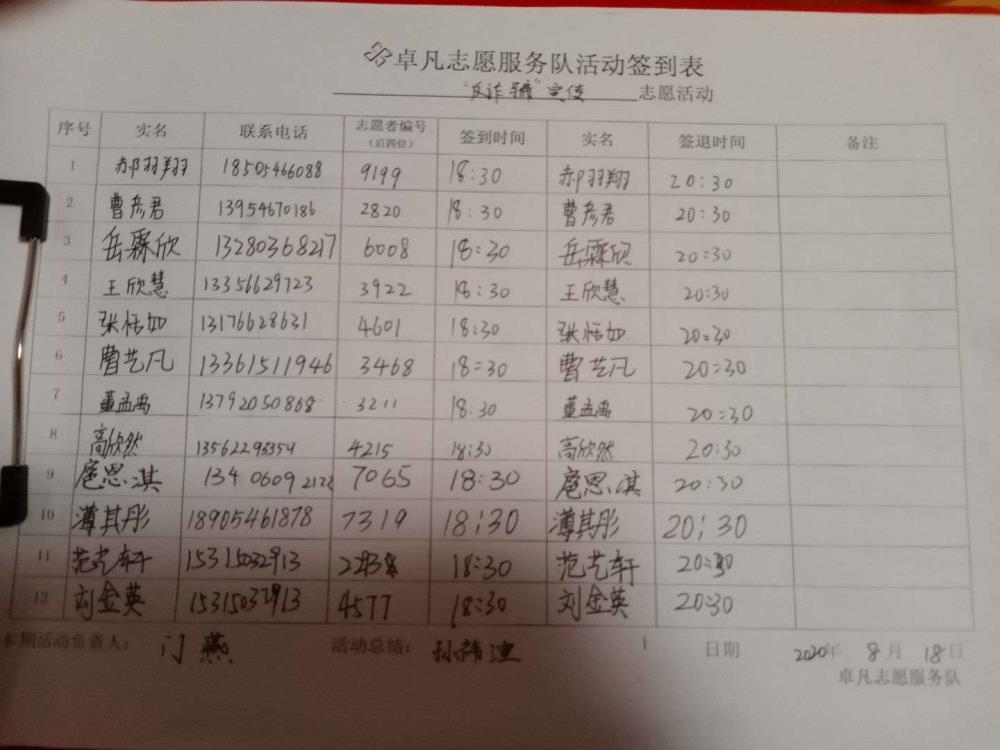 卓凡志愿服务队活动签到表
"反诈骗"宣传 志愿活动
序号 实名 联系电话 志愿者编号（后四位） 签到时间 实名 签退时间 备注
1 郝羽翔 18505466088 9199 18:30 郝羽翔 20:30
2 曹彦君 13954670186 2820 18:30 曹彦君 20:30
3 岳霖欣 13280368217 6008 18:30 岳霖欣 20:30
4 王欣慧 13356629723 3922 18:30 王欣慧 20:30
5 张恬如 13176628631 4601 18:30 张恬如 20:30
6 曹艺凡 13361511946 3468 18:30 曹艺凡 20:30
7 董孟禹 13792050868 3211 18:30 董孟禹 20:30
8 高欣然 4215 18:30 高欣然 20:30
9 扈思淇 13406092122 7065 18:30 扈思淇 20:30
10 薄其彤 18905461878 7319 18:30 薄其彤 20:30
11 范艺轩 15315032913 18:30 范艺轩 20:30
12 刘金英 15315032913 4577 18:30 刘金英 20:30
本期活动负责人： 门燕 活动总结： 日期 2020年 8月 18日
卓凡志愿服务队